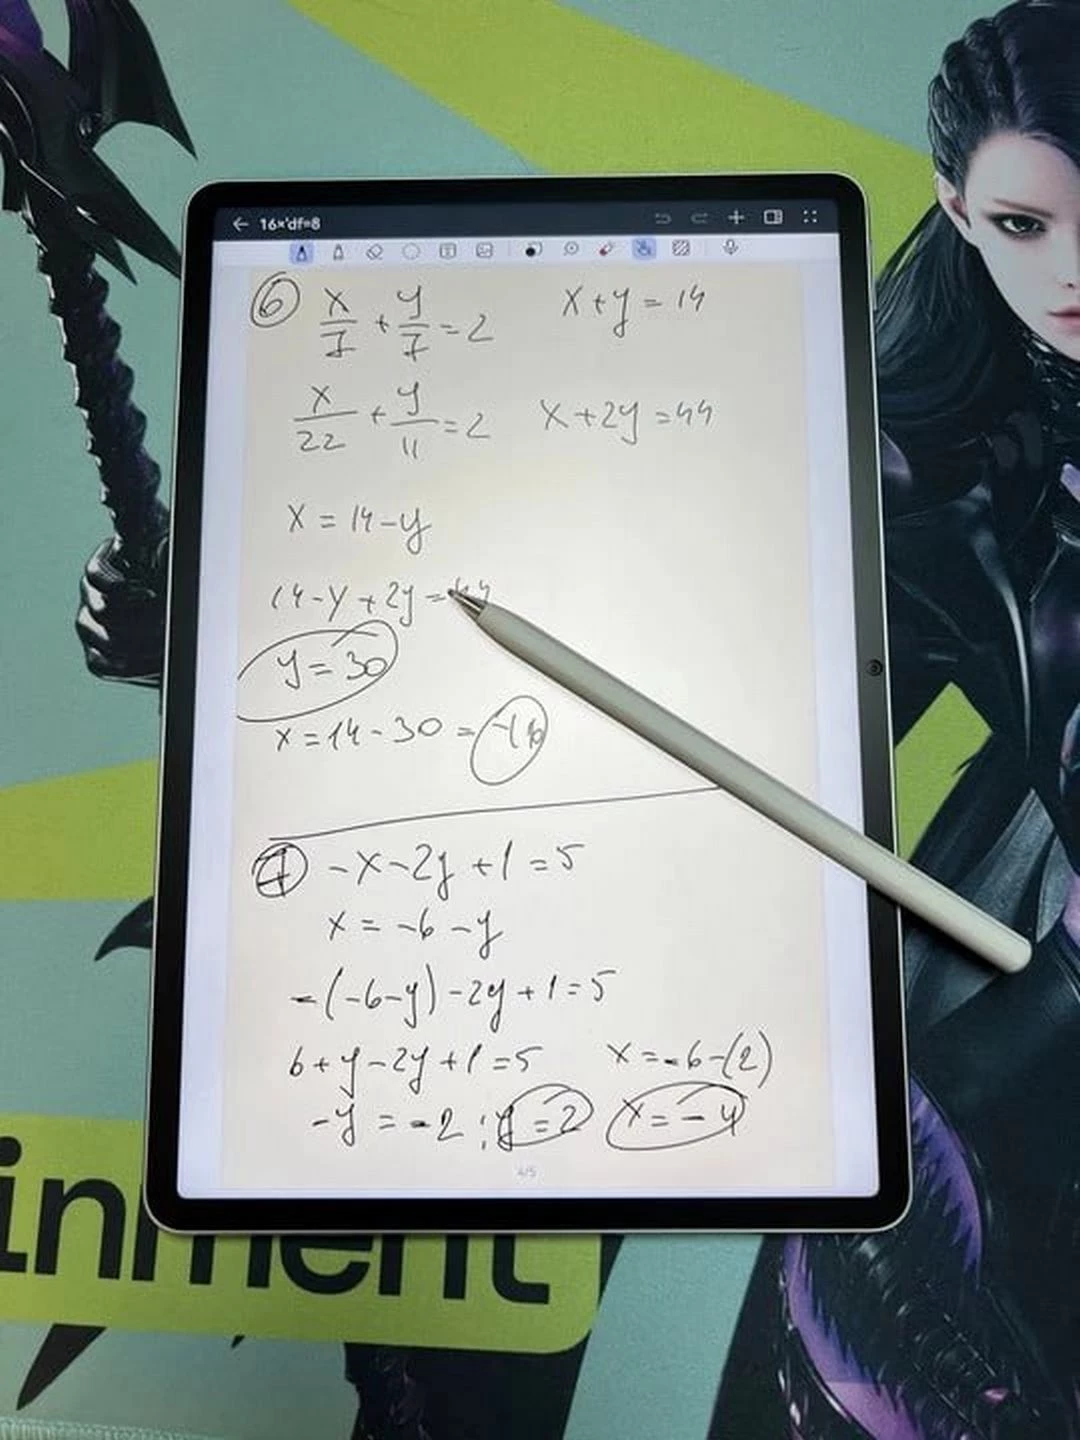 16×'df=8
6 x/7 + y/7 = 2 x + y = 14
x/22 + y/11 = 2 x + 2y = 44
x = 14 - y
14 - y + 2y = 44
y = 30
x = 14 - 30 = -16
7 -x - 2y + 1 = 5
x = -6 - y
-(-6-y) - 2y + 1 = 5
6 + y - 2y + 1 = 5 x = -6 - (2)
-y = -2 ; y = 2 x = -4
4/5
inment